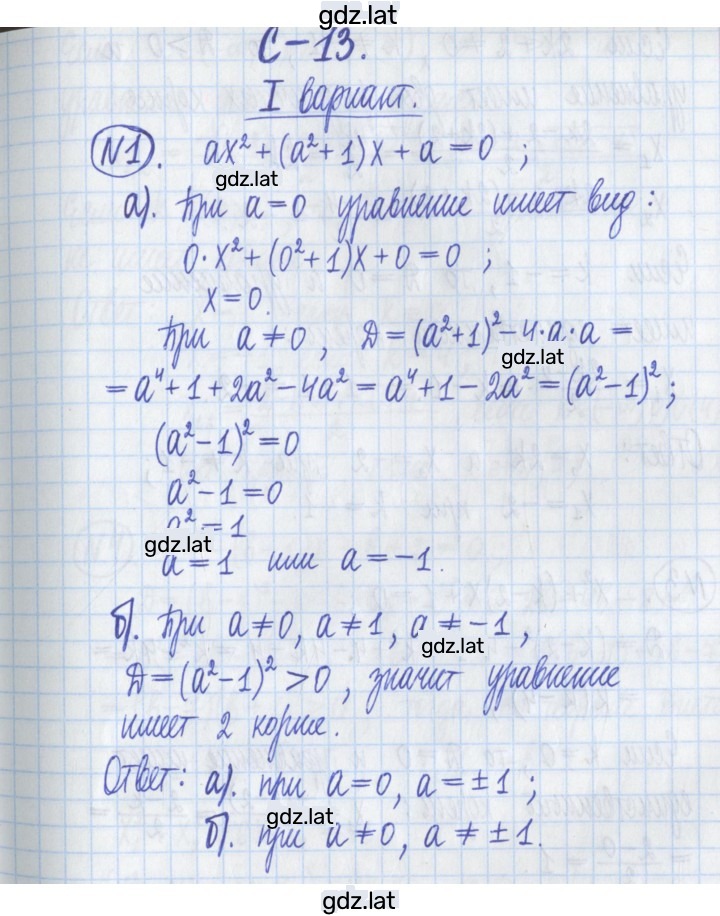 gdz.lat
С-13.
I вариант.
№1. ax² + (a² + 1)x + a = 0 ;
gdz.lat
а). При a = 0 уравнение имеет вид :
0 · x² + (0² + 1)x + 0 = 0 ;
x = 0.
При a ≠ 0 , Д = (a² + 1)² − 4 · a · a =
gdz.lat
= a⁴ + 1 + 2a² − 4a² = a⁴ + 1 − 2a² = (a² − 1)² ;
(a² − 1)² = 0
a² − 1 = 0
a² = 1
gdz.lat
a = 1 или a = −1.
б). При a ≠ 0, a ≠ 1 , a ≠ −1 ,
gdz.lat
Д = (a² − 1)² > 0 , значит уравнение
имеет 2 корня.
Ответ: а). при a = 0, a = ± 1 ;
gdz.lat
б). при a ≠ 0, a ≠ ± 1.
gdz.lat